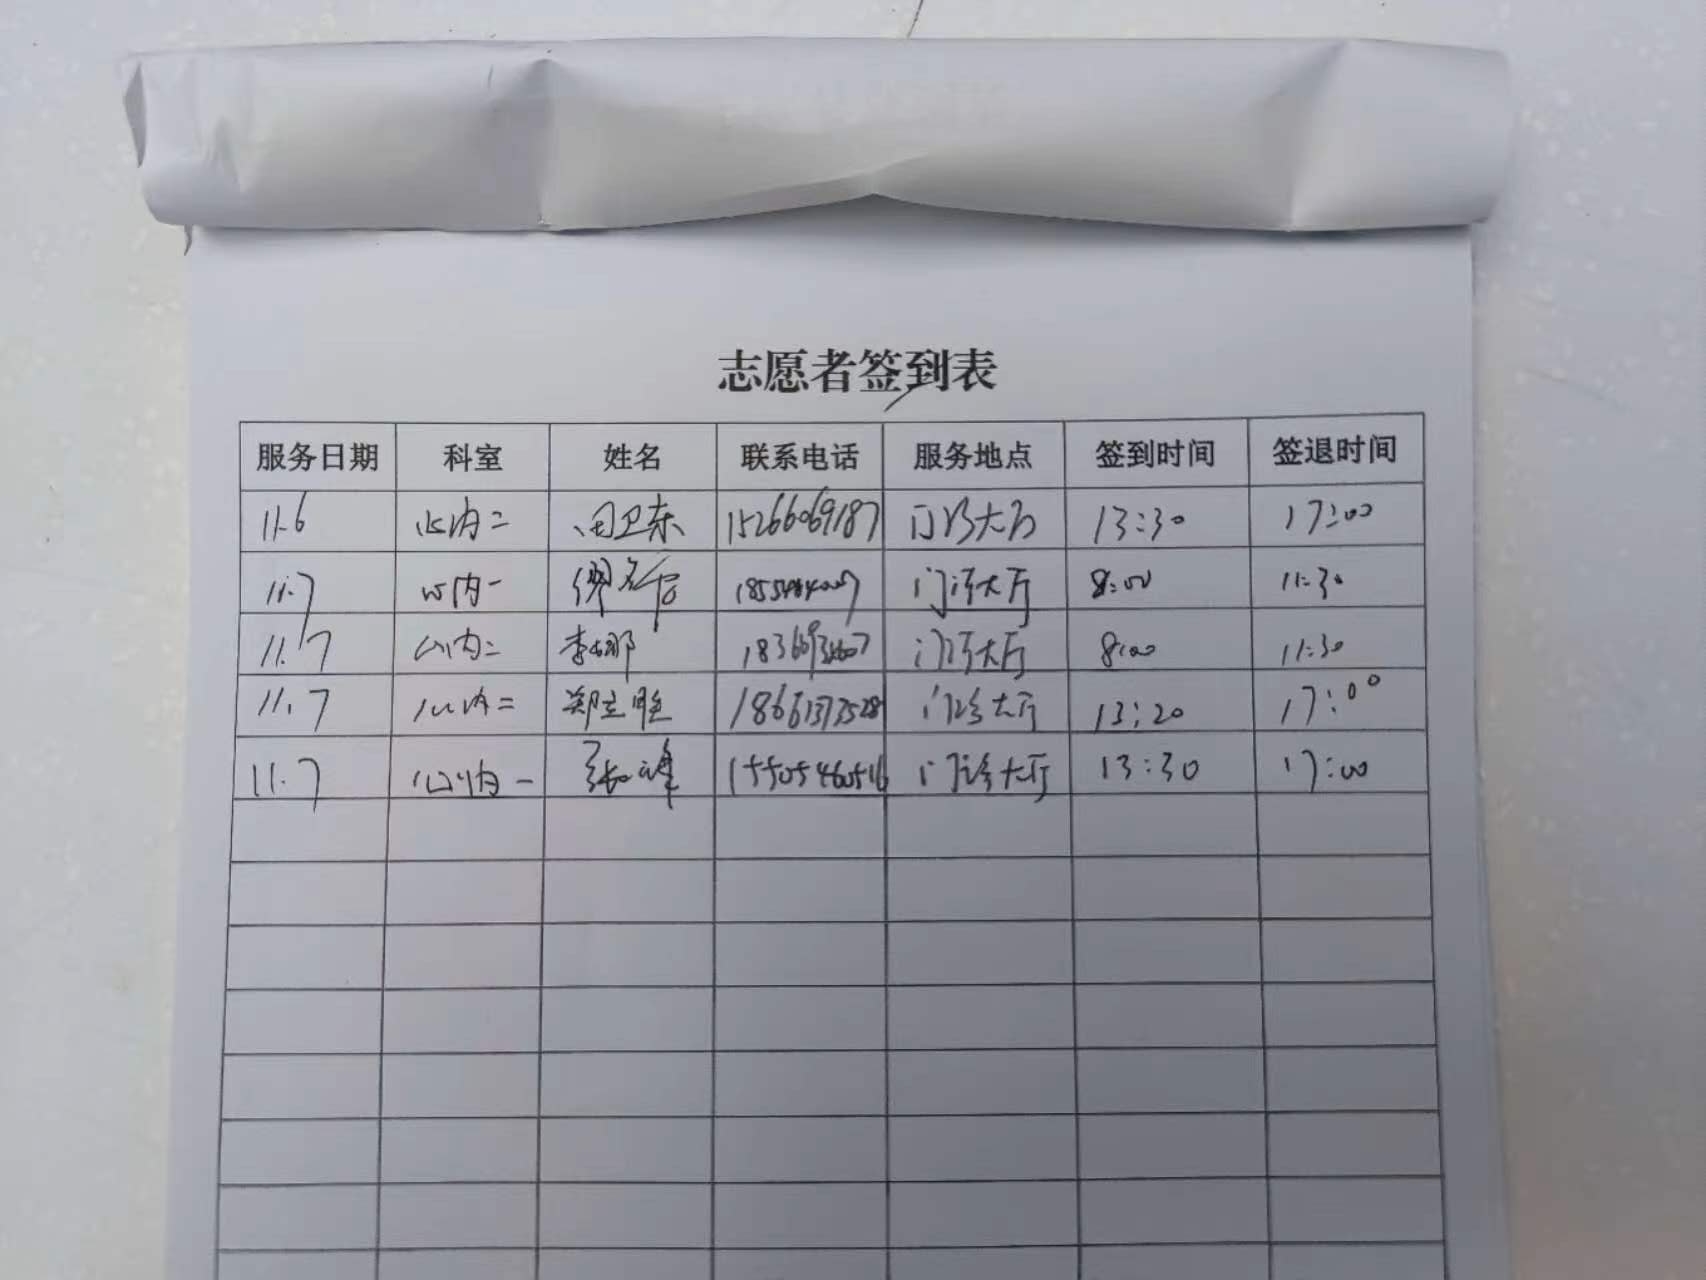 志愿者签到表
服务日期 科室 姓名 联系电话 服务地点 签到时间 签退时间
11.6 心内二 田卫东 15266069187 门诊大厅 13:30 17:00
11.7 心内一 门诊大厅 8:00 11:30
11.7 心内二 李娜 门诊大厅 8:00 11:30
11.7 心内二 郑立胜 18661377528 门诊大厅 13:20 17:00
11.7 心内一 张峰 15505460516 门诊大厅 13:30 17:00